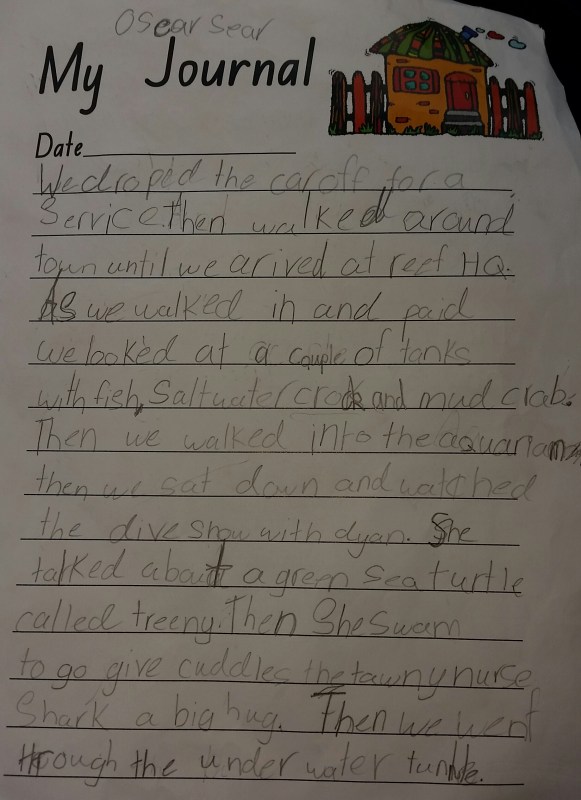 Oscar Sear
My Journal
Date
We droped the car off for a
Service. Then walked around
town until we arived at reef HQ.
As we walked in and paid
we looked at a couple of tanks
with fish, Saltwater crock and mud crab.
Then we walked into the aquariam
then we sat down and watched
the dive show with dyan. She
talked about a green sea turtle
called treeny. Then She Swam
to go give cuddles the tawny nurse
Shark a big hug. Then we went
through the under water tunnle.